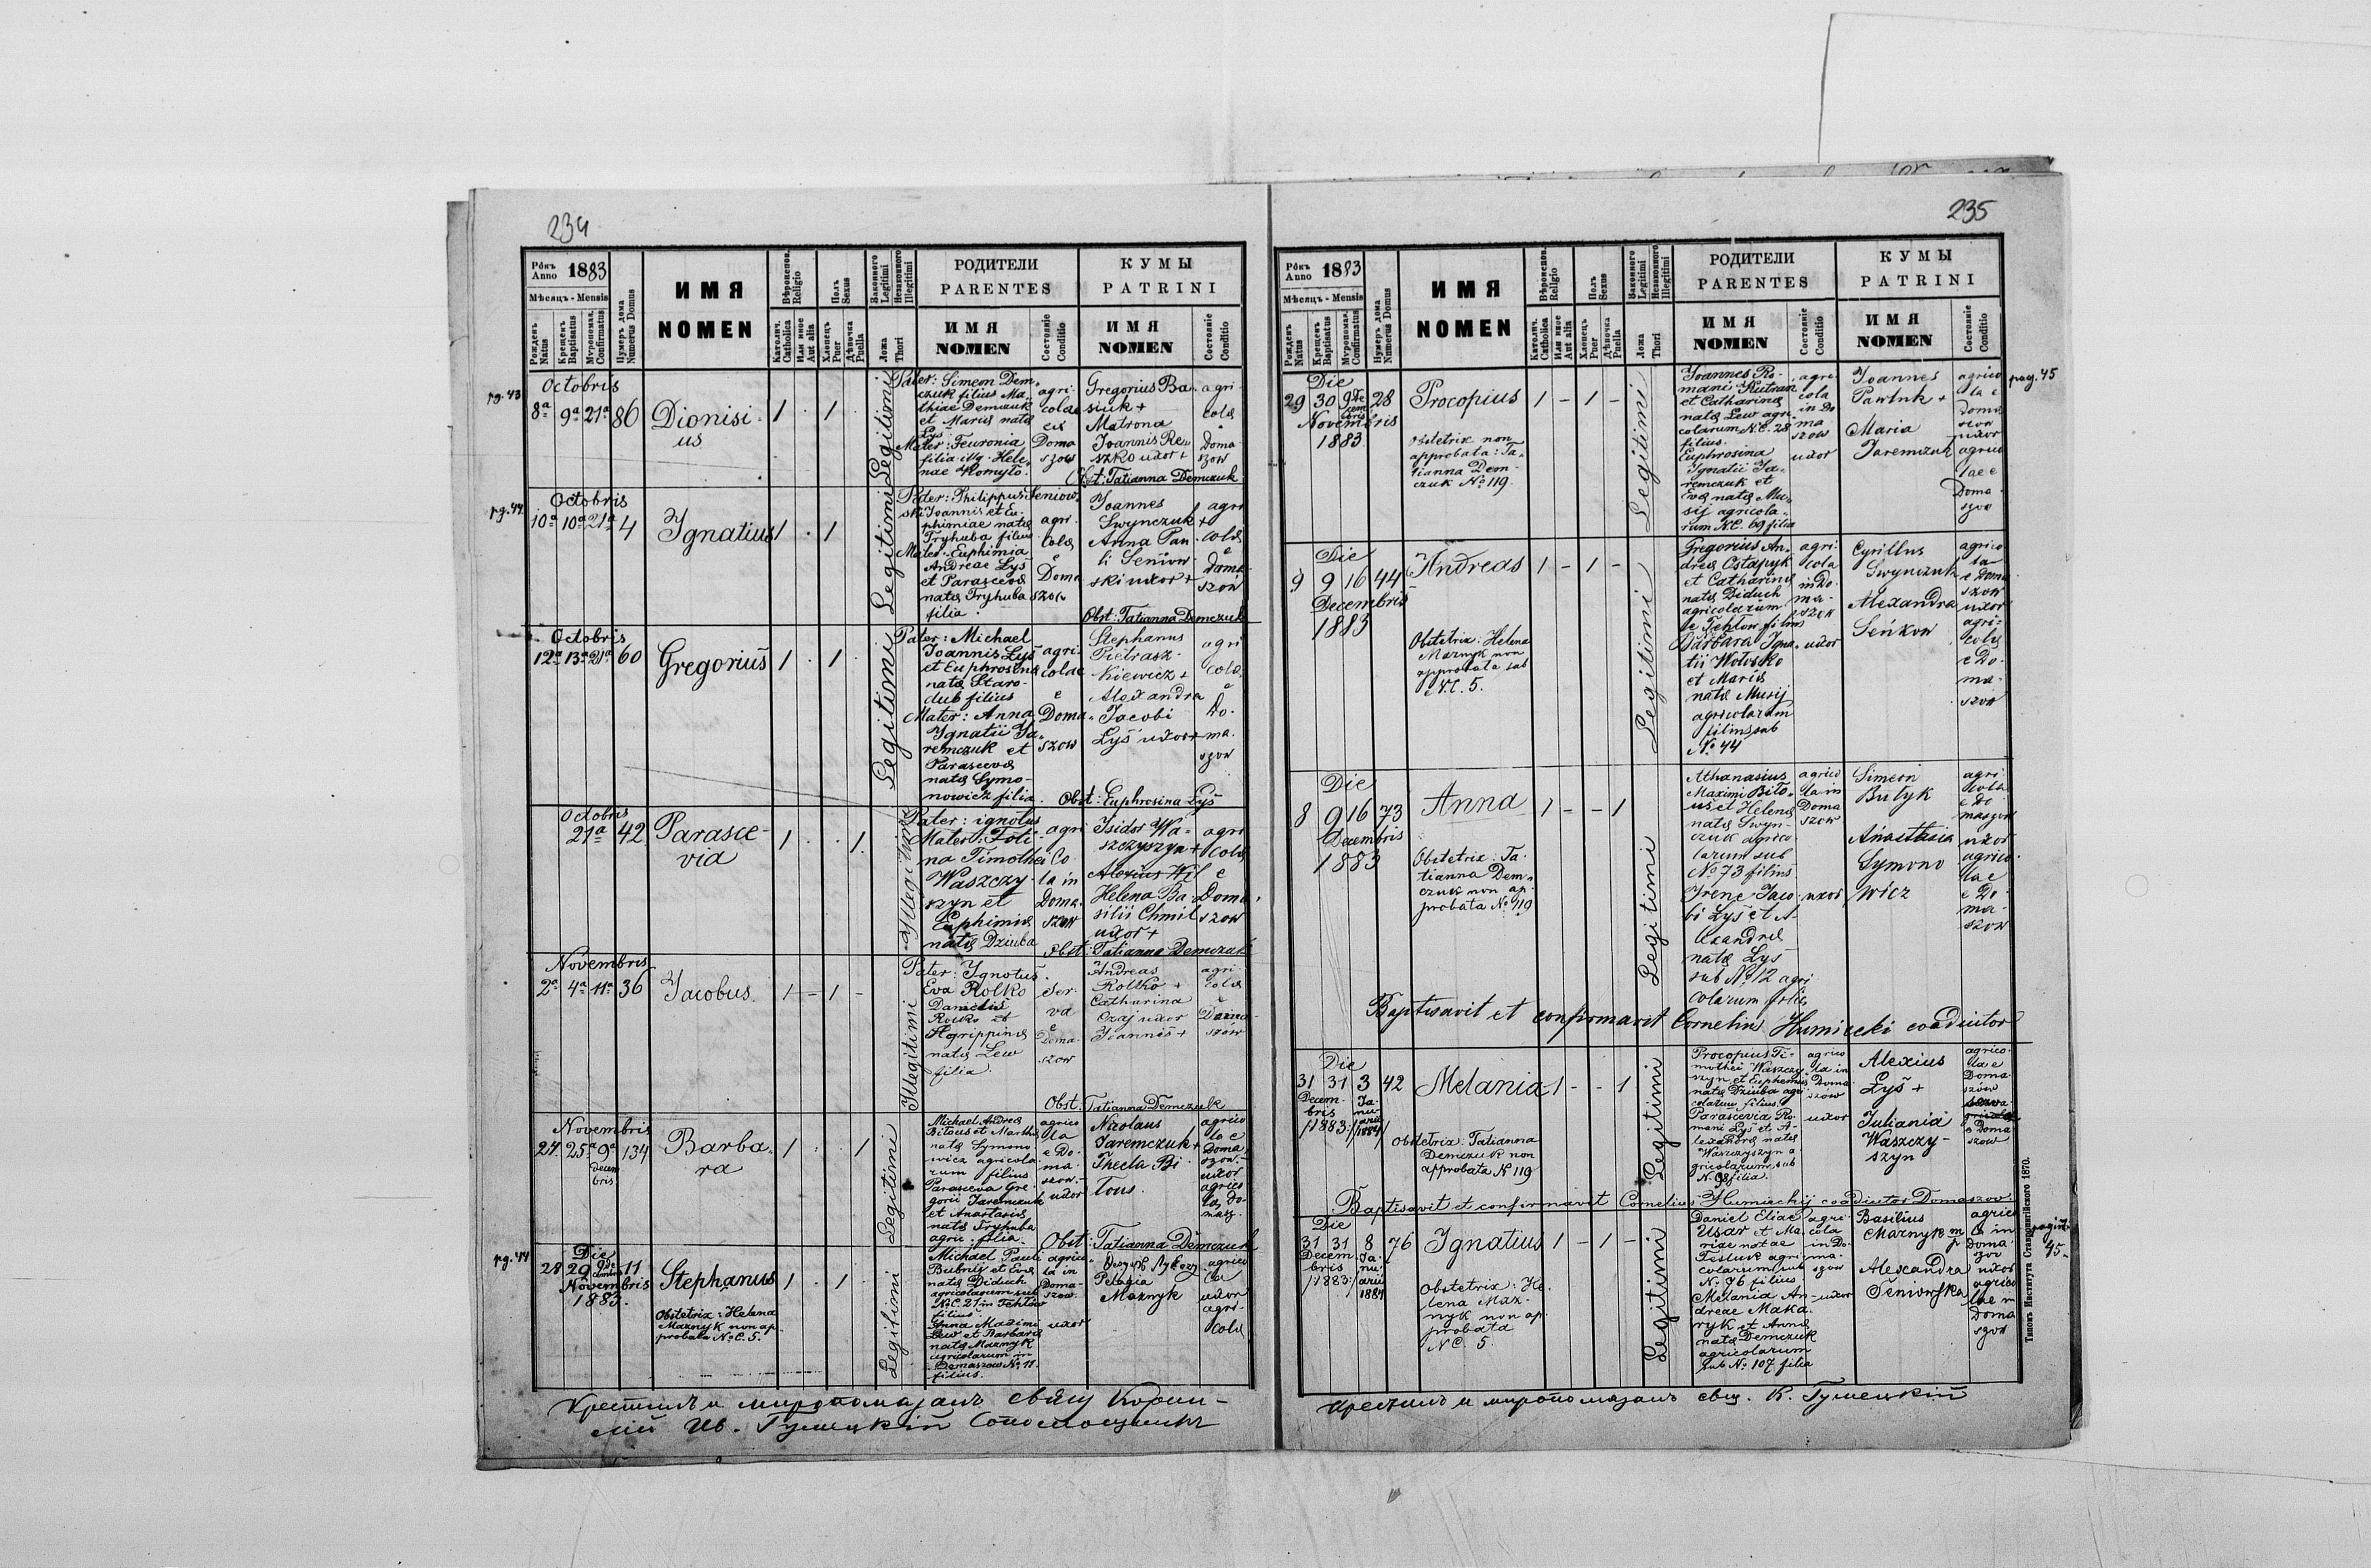 234
Рôкъ Anno 1883
Мѣсяцъ - Mensis
Рожденъ Natus
Крещенъ Baptisatus
Муропомаз. Confirmatus
Нумеръ дома Numerus Domus
ИМЯ
NOMEN
Вѣроиспов. Religio
Католич. Catholica
Или иное Aut alia
Полъ Sexus
Хлопецъ Puer
Дѣвочка Puella
Законного Legitimi
Незаконного Illegitimi
Ложа Thori
РОДИТЕЛИ
PARENTES
ИМЯ
NOMEN
Состояніе Conditio
КУМЫ
PATRINI
ИМЯ
NOMEN
Состояніе Conditio
pg. 43
Octobris
8ª 9ª 21ª 86
Dionisi-
us
1 . 1 .
Legitimi
Pater: Simeon Dem-
czuk filius Ma-
thiae Demczuk
et Mariæ natæ
Lys
Mater: Feuronia
filia illg. Hele-
nae Kornyło.
agri-
colæ
ex
Doma
szow
Gregorius Ba-
siuk +
Matrona
Joannis Re-
szko uxor +
agri
colæ
e
Doma
szow
Obst: Tatianna Demczuk
pg. 44
Octobris
10ª 10ª 21ª 4
Ignatius
1 . 1
Legitimi
Pater: Philippus Seniow-
ski Joannis et Eu-
phimiae natæ
Tryhuba filius
Mater: Euphimia
Andreae Lys
et Parascevæ
natæ Tryhuba
filia.
agri-
colæ
e
Doma
szow
Joannes
Swynczuk +
Anna Pau-
li Seniow-
ski uxor +
agri
colæ
e
Doma-
szów
Obst: Tatianna Demczuk
Octobris
12ª 13ª 21ª 60
Gregorius
1 . 1 .
Legitimi
Pater: Michael
Joannis Lyś
et Euphrosinæ
natæ Staro-
dub filius
Mater: Anna
Ignatii Ja-
remczuk et
Parascevæ
natæ Symo-
nowicz filia.
agri-
colae
e
Doma-
szow
Stephanus
Pietrasz-
kiewicz +
Alexandra
Jacobi
Lyś uxor +
agri
colæ
e
Do-
ma-
szow
Obst: Euphrosina Lyś
Octobris
21ª 42
Parasce-
via
1 . . 1
Illegitimi
Pater: ignotus
Mater: Foti-
na Timothei
Waszczy-
szyn et
Euphimiæ
natæ Dziuba
agri
co-
la in
Doma-
szow
Isidor Wa-
szczyszyn +
Alexius Hil
Helena Ba-
silii Chmil
uxor +
agri
colæ
e
Doma-
szow
Obst: Tatianna Demczuk
Novembris
2ª 4ª 11ª 36
Jacobus
1 - 1 -
Illegitimi
Pater: Ignotus.
Eva Rolko
Danielis
Rolko et
Agrippinæ
natæ Lew
filia.
Ser-
va
e
Doma-
szow
Andreas
Rolko +
Catharina
Czaj uxor
Joannis +
agri-
colæ
e
Doma-
szow
Obst: Tatianna Demczuk
Novembris
24 25ª 9ª 134
Decem
bris
Barba-
ra
1 . . 1
Legitimi
Michael Andreæ
Biłous et Marthæ
natæ Symono-
wicz agricola-
rum filius
Parasceva Gre-
gorii Jaremczuk
et Anastasiæ
natæ Tryhuba
agric. filia.
agrico
la
e Do-
ma-
szow.-
uxor
Nicolaus
Jaremczuk +
Thecla Bi-
łous.
agrico
la e
Doma
szow.-
uxor
agrico
læ Do-
masz.
Obst: Tatianna Demczuk
pg. 44
Die
28 29 9 11
Novembris
1883.
Stephanus
Obstetrix: Helena
Maznyk non ap-
probata N.C. 5.
1 . 1 .
Legitimi
Michael Pauli
Bubnij et Evæ
natæ Diduch
agricolarum sub
N.C. 21 in Tehlów
filius
Anna Maximi
Lew et Barbaræ
natæ Maznyk
agricolarum in
Domaszow № 11.
filius.
agrico
la in
Doma-
szow.
uxor
Pelagia
Maznyk
agrico
la
uxor
agri-
colæ
Крестилъ и миропомазалъ свящ Корни-
лій Ив. Гумецкій Сопомощникъ
235
Рôкъ Anno 1883
Мѣсяцъ - Mensis
Рожденъ Natus
Крещенъ Baptisatus
Муропомаз. Confirmatus
Нумеръ дома Numerus Domus
ИМЯ
NOMEN
Вѣроиспов. Religio
Католич. Catholica
Или иное Aut alia
Полъ Sexus
Хлопецъ Puer
Дѣвочка Puella
Законного Legitimi
Незаконного Illegitimi
Ложа Thori
РОДИТЕЛИ
PARENTES
ИМЯ
NOMEN
Состояніе Conditio
КУМЫ
PATRINI
ИМЯ
NOMEN
Состояніе Conditio
pag. 45
Die
29 30 9 28
Decem
bris
Novembris
1883.
Procopius
Obstetrix non
approbata: Ta-
tianna Dem-
czuk № 119.
1 - 1 -
Legitimi
Joannes Ro-
mani Kutran
et Catharinæ
natæ Lew agri-
colarum N.C. 28
filius.
Euphrosina
Ignatii Ja-
remczuk et
Evæ natæ Mu-
sij agricola-
rum N.C. 69 filia
agri-
cola
in Do
ma
szow
uxor
Joannes
Pawluk +
Maria
Jaremczuk
agrico
la e
Doma
szow
uxor
agrico
lae e
Doma-
szow
Die
9 9 16 44
Decembris
1883
Andreas
Obstetrix: Helena
Maznyk non
approbata sub
N.C. 5.
1 - 1 -
Legitimi
Gregorius An-
dreæ Ostapyk
et Catharinæ
natæ Diduch
agricolarum
e Tehlow filius
Barbara Igna-
tii Wołosko
et Mariæ
natæ Musij
agricolarum
filius sub
№ 44
agri-
cola
in Do-
ma-
szow
uxor
Cyrillus
Swynczuk
Alexandra
Seńkow
agrico
la
e Doma
szow
uxor
agri-
colæ
e Do-
ma-
szow
Die
8 9 16 73
Decembris
1883
Anna
Obstetrix: Ta-
tianna Dem-
czuk non ap-
probata № 119
1 - - 1
Legitimi
Athanasius
Maximi Biło-
us et Helenæ
natæ Swyn-
czuk agrico
larum sub
№ 73 filius
Irene Jaco-
bi Lyś et A-
lexandræ
natæ Lyś
sub № 12 agri
colarum filia
agrico
la in
Doma
szow
uxor
Simeon
Butyk
Anastasia
Symono
wicz
agri-
cola
e Do
maszow
uxor
agrico-
lae
e Do-
ma-
szow
Baptisavit et confirmavit Cornelius Humiecki coadiutor
Die
31 31 3 42
Decem-
bris
/1883/
Ja-
nu-
arii
/1884/
Melania
Obstetrix: Tatianna
Demczuk non
approbata № 119
1 - - 1
Legitimi
Procopius Ti-
mothei Waszczy-
szyn et Euphemiæ
natæ Dziuba agri-
colarum filius.
Parascevia Ro-
mani Lyś et A-
lexandræ natæ
Waszczyszyn a-
gricolarum sub
filia.
agrico
la in
Doma-
szow
uxor
Alexius
Lyś +
Juliania
Waszczy-
szyn
agrico-
la e
Doma-
szów
e Doma-
szow
Baptisavit et confirmavit Cornelius Humieckij coadiutor Domaszow
Die
31 31 8 76
Decem-
bris
/1883/
Ja-
nu-
arii
1884
Ignatius
Obstetrix: He-
lena Maz-
nyk non ap
probata
N.C. 5.
1 - 1 -
Legitimi
Daniel Eliae
Usar et Ma-
riae natae
Tesluk agri-
colarum sub
№ 76 filius
Melania An-
dreae Maka-
ryk et Annæ
natæ Demczuk
agricolarum
sub № 107 filia
agri-
cola
in Do-
ma-
szow
uxor
Basilius
Maznyk
Alexandra
Seniowska
agrico
la in
Doma-
szow
uxor
agrico
lae in
Doma
szow
pagin.
45.
Крестилъ и миропомазалъ свщ. К. Гумецкій
Типомъ Института Ставропигійского 1870.